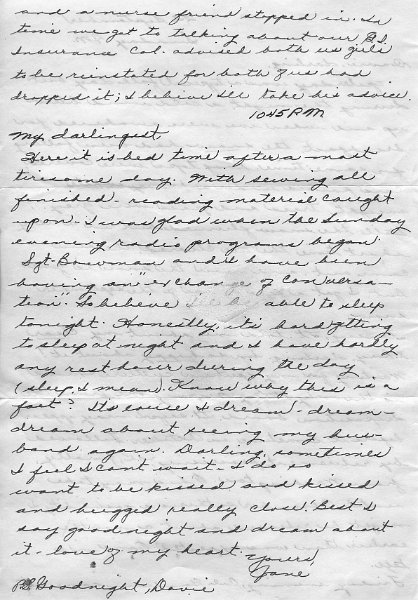 and a nurse friend stopped in. In
time we got to talking about our G.I.
Insurance Col. advised both us girls
to be reinstated for both of us had
dropped it; I believe I'll take his advice
1045 P.M
My darlingest
Here it is bed time after a most
tiresome day. With sewing all
finished - reading material caught
upon - I was glad when the Sunday
evening radio programs began.
Sgt. Bowman and I have been
having an "exchange of conversa-
tion". So believe I'll be able to sleep
tonight. Honestly, it's hard getting
to sleep at night and I have hardly
any rest hour during the day
(sleep, I mean). Know why this is a
fact? Its cause I dream - dream -
dream about seeing my hus-
band again. Darling, sometimes
I feel I cant wait - I do so
want to be kissed and kissed
and hugged really close! Best I
say goodnight and dream about
it - love of my heart.
Yours,
Jane
PS Goodnight, Davie